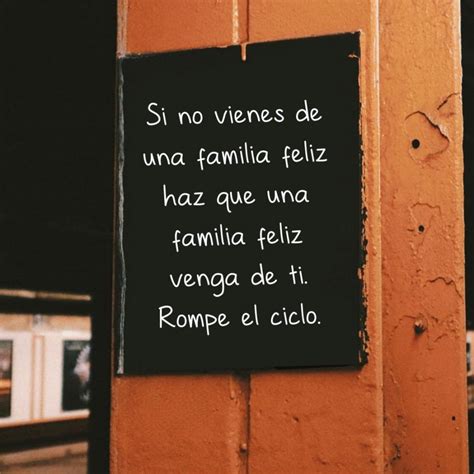 Si no vienes de
una familia feliz
haz que una
familia feliz
venga de ti.
Rompe el ciclo.